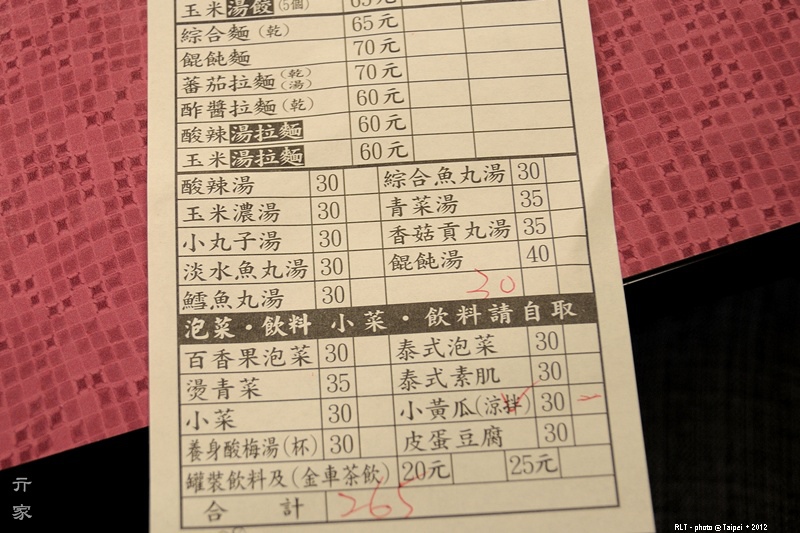 玉米湯餃(5個) 65元
綜合麵(乾) 65元
餛飩麵 70元
蕃茄拉麵(乾)(湯) 70元
酢醬拉麵(乾) 60元
酸辣湯拉麵 60元
玉米湯拉麵 60元
酸辣湯 30 綜合魚丸湯 30
玉米濃湯 30 青菜湯 35
小丸子湯 30 香菇貢丸湯 35
淡水魚丸湯 30 餛飩湯 40
鱈魚丸湯 30 30
泡菜・飲料 小菜・飲料請自取
百香果泡菜 30 泰式泡菜 30
燙青菜 35 泰式素肌 30
小菜 30 小黃瓜(涼拌) 30 一
養身酸梅湯(杯) 30 皮蛋豆腐 30
罐裝飲料及(金車茶飲) 20元 25元
合計 265
亓家
RLT - photo @Taipei + 2012